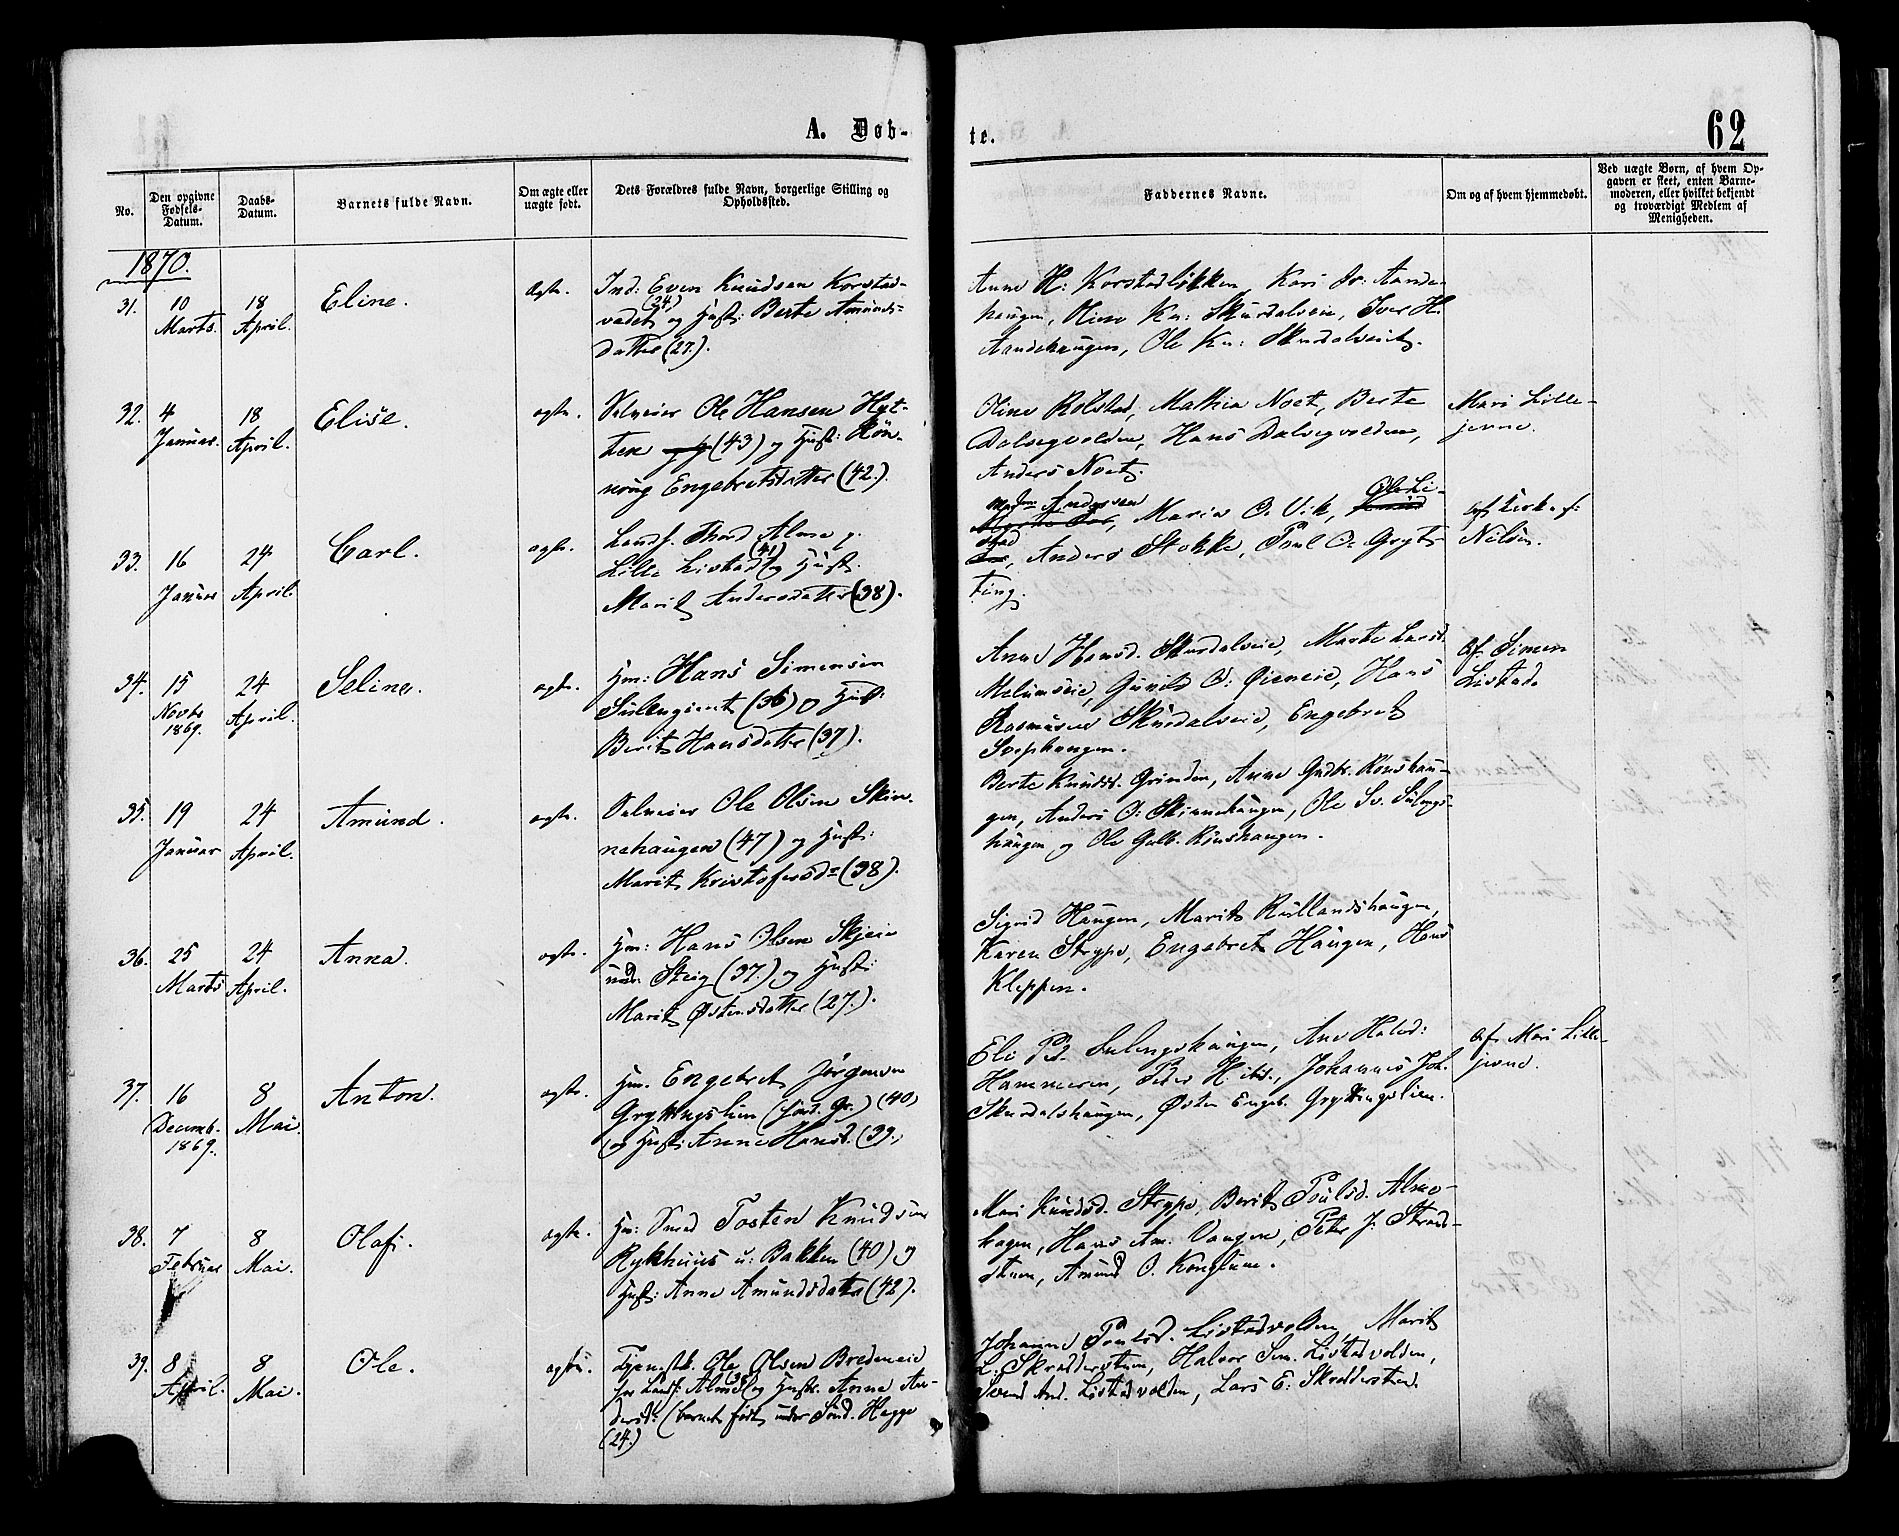 A. Døb-
te.
62
No.
Den opgivne Fødsels-Datum.
Daabs-Datum.
Barnets fulde Navn.
Om ægte eller uægte født.
Dets Forældres fulde Navn, borgerlige Stilling og Opholdssted.
Faddernes Navne.
Om og af hvem hjemmedøbt.
Ved uægte Børn, af hvem Op-
gaven er skeet, enten Barne-
moderen, eller hvilket bekjendt
og troværdigt Medlem af
Menigheden.
1870.
31. 10 Marts. 18 April. Eline. Ægte.
Ind: Even Knudsen Korstad-
vedet (24.) og Hust: Berte Amunds-
datter (27.).
Anne H: Korstadløkken, Kari
haugen, Kn: Skurdalseie, Iver H.
Aandehaugen, Ole Kn: Skurdalseie.
32. 4 Januar. 18 April. Elise. ægte.
Selveier Ole Hansen
(43) og Hust: Røn-
nøug Engebretsdatter (42.).
Oline Rolstad, Mathia Noet, Berte
Dalsegvolden, Hans Dalsegvolden,
Anders Noet.
Mari Lille-
jevne.
33. 16 Januar 24 April. Carl. ægte.
Landh. Thord Alme p.
Lille Listad (41) og Hust:
Marit Andersdatter (38).
Andersen
Maria O. Vik, Ole Li-
stad, Anders Stokke, Poul O: Gryt-
ting.
af Kirkes:
Nilsen.
34. 15 Novbr 1869. 24 April. Selina. ægte.
Hm: Hans Simensen
Sullengient (36) og Hust:
Berit Hansdatter (37).
Anne Hansd. Skurdalseie, Marte Larsd.
Melumseie, Gunild O: Øieneie, Hans
Rasmusen Skurdalseie, Engebret
Svephaugen.
Af Simen
Listad.
35. 19 Januar 24 April. Amund. ægte.
Selveier Ole Olsen Skin-
nehaugen (47) og Hust:
Marit Kristofersdr (38).
Berte Knudsd. Grinden, Anne Gudbr. Rønshau-
gen, Anders O: Skinnehaugen, Ole Sv. Sulengs-
haugen og Ole Gulb. Rønshaugen.
36. 25 Marts 24 April. Anna. ægte.
Hm: Hans Olsen Skjeie
und. Steig (37.) og Hust:
Marit Østensdatter (27.).
Sigrid Haugen, Marit Rullandshaugen,
Karen Strype, Engebret Haugen, Hans
Kleppen.
37. 16 Decemb. 1869. 8 Mai. Anton. ægte.
Hm. Engebret Jørgensen
Gryttingslien (Sønd. Gr.) (40)
og Hust: Anne Hansd. (39.)
Eli Pd. Sulengshaugen, Ane Halvd:
Hammeren, Peder H. ibid., Johannes Joh.
Skurdalshaugen, Østen Engeb. Gryttingslien.
af Mari Lille-
jevne.
38. 7 Februar 8 Mai. Olaf. ægte.
Hm: Smed Tosten Knudsen
Rykhuus u: Bakken (40) og
Hust: Anne Amundsdatter (42).
Mari Knudsd. Strype, Berit Poulsd. Alme-
hagen, Hans Am: Vangen, Peter J: Strand-
stuen, Amund O. Kongslien.
39. 8 April. 8 Mai. Ole. ægte.
Tjenestk. Ole Olsen Bredeneie
hos Landh. og Hust: Anne An-
dersd. (barnet født under Sønd. Hegge
(24.)
Johanne Poulsd. Listadvolden, Marit
L. Skrædderstuen, Halvor Sim. Listadvolden,
Svend And. Listadvolden, Lars E: Skrædderstuen.